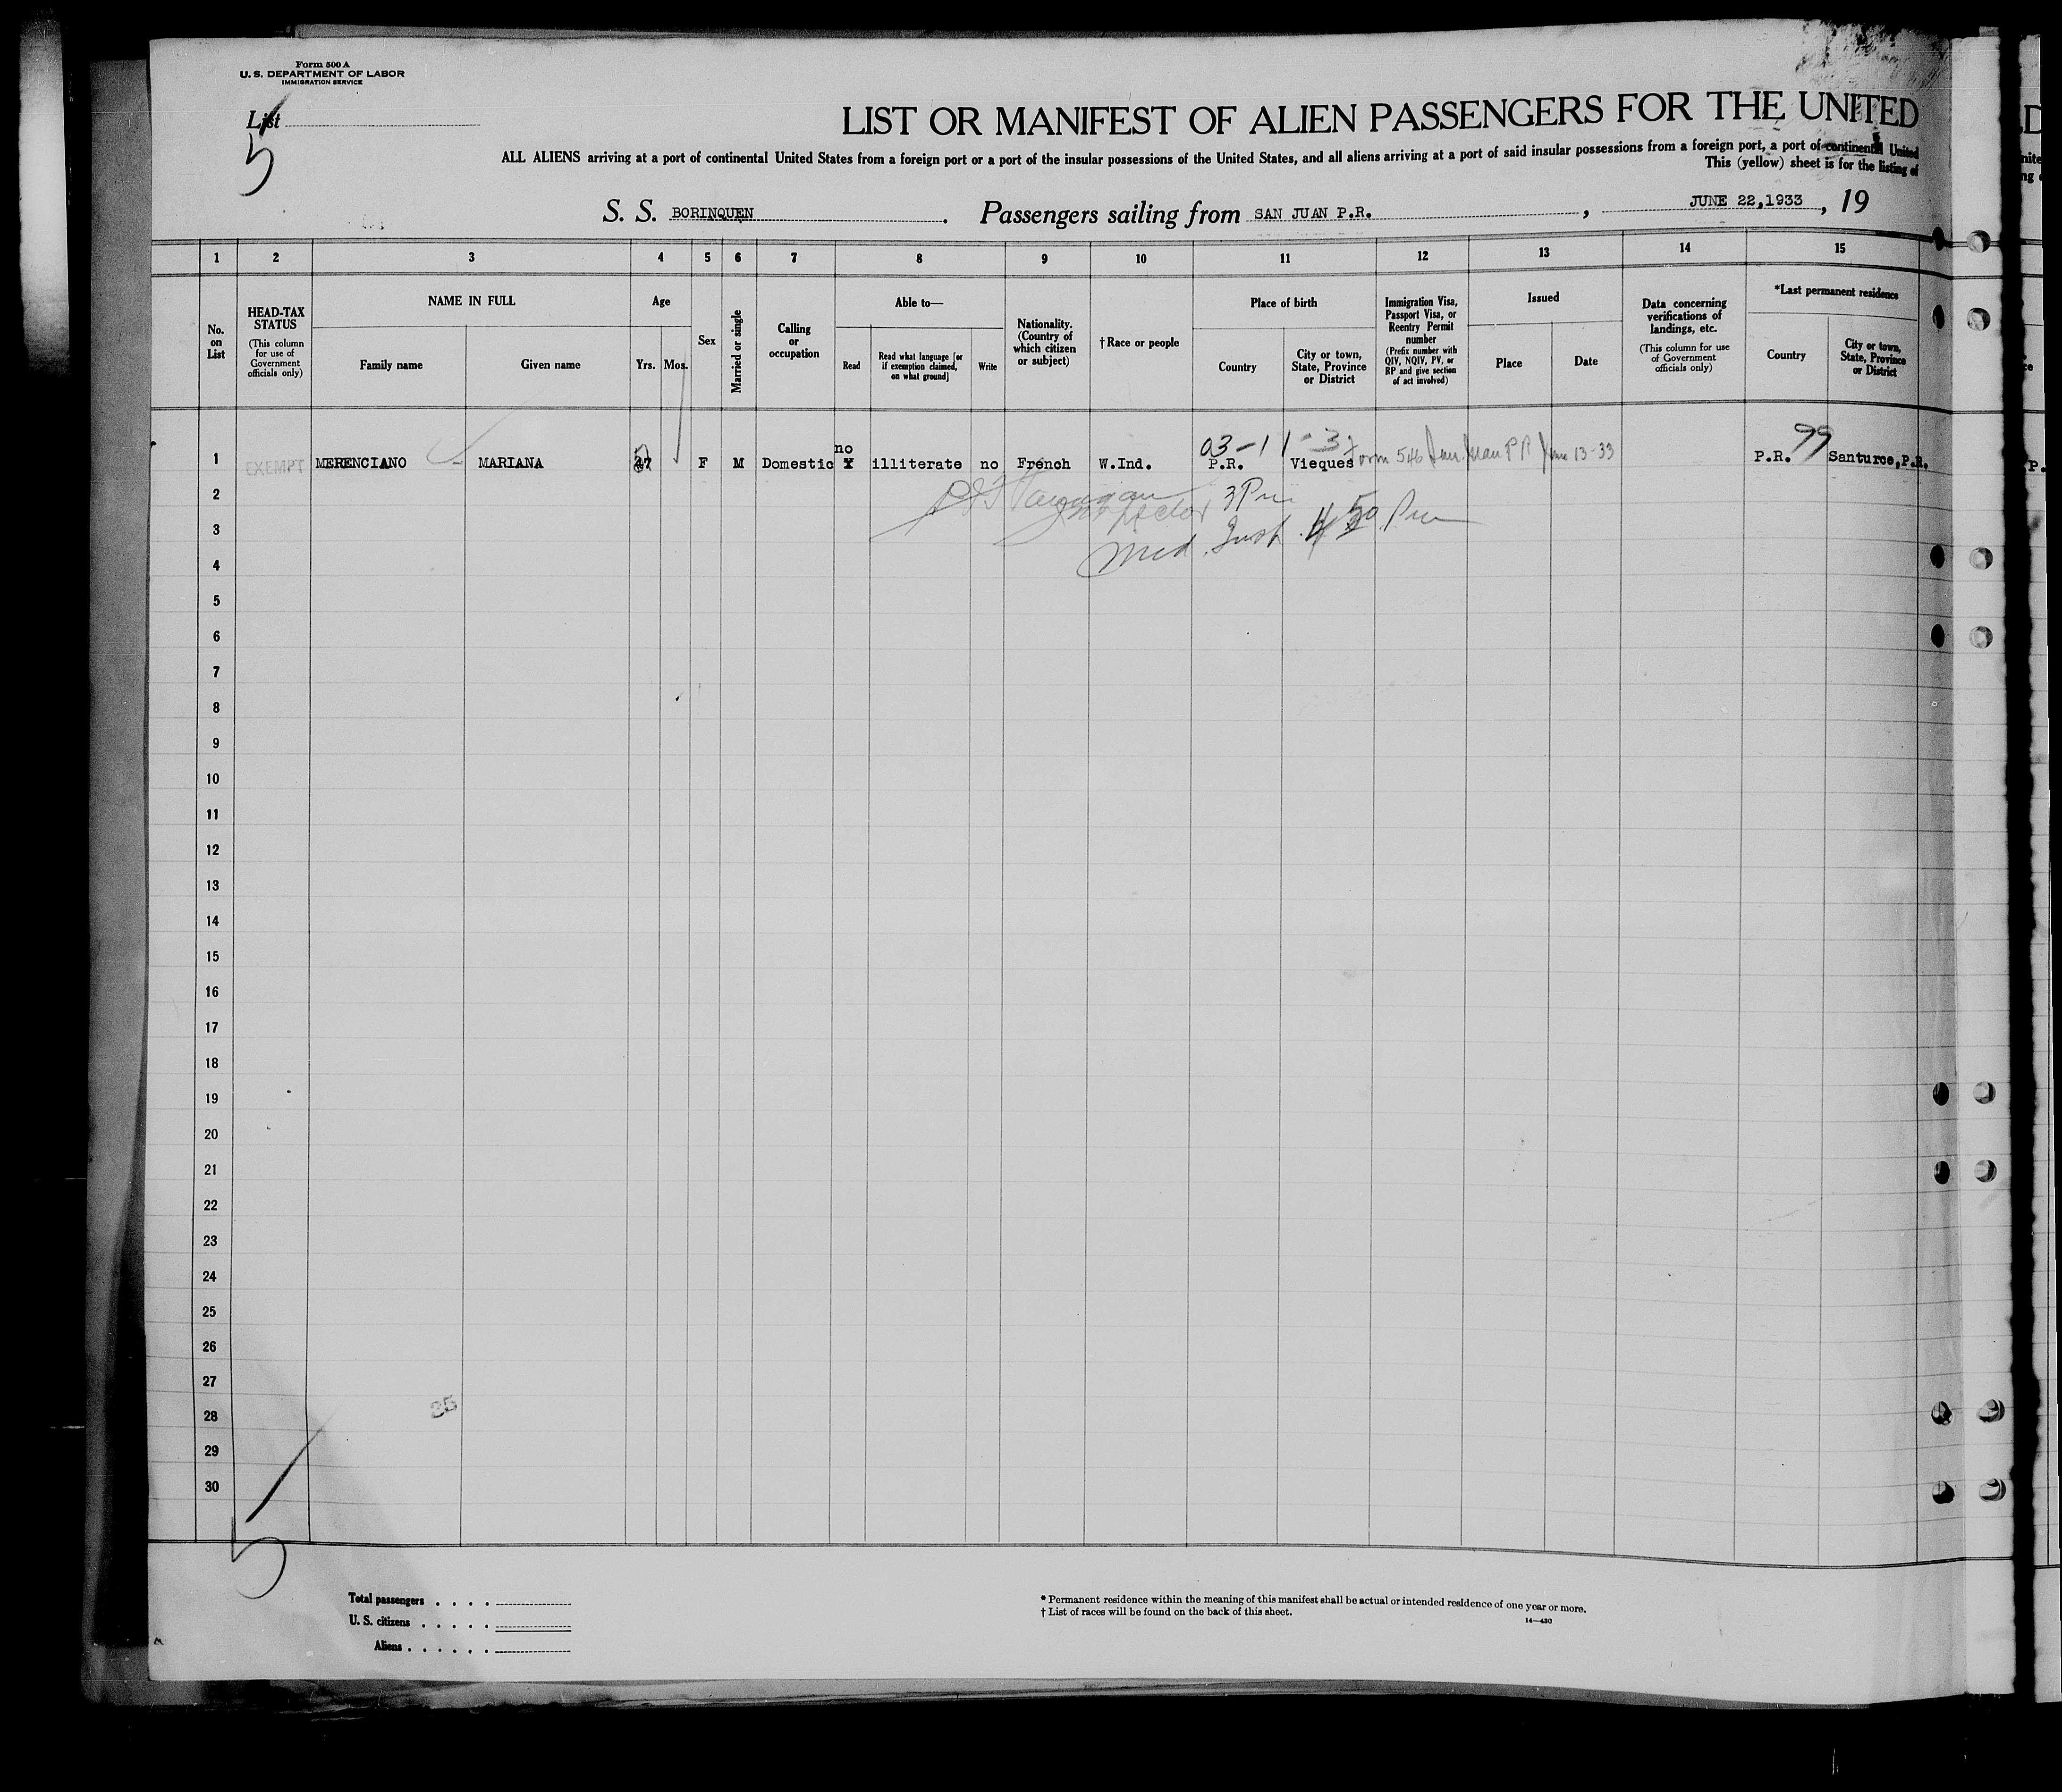 Form 500 A
U. S. DEPARTMENT OF LABOR
IMMIGRATION SERVICE
List
5
LIST OR MANIFEST OF ALIEN PASSENGERS FOR THE UNITED
ALL ALIENS arriving at a port of continental United States from a foreign port or a port of the insular possessions of the United States, and all aliens arriving at a port of said insular possessions from a foreign port, a port of continental United
This (yellow) sheet is for the listing of
S. S. BORINQUEN . Passengers sailing from SAN JUAN P.R. , JUNE 22,1933 , 19
1 2 3 4 5 6 7 8 9 10 11 12 13 14 15
No. on List
HEAD-TAX STATUS
(This column for use of Government officials only)
NAME IN FULL
Family name
Given name
Age
Yrs.
Mos.
Sex
Married or single
Calling or occupation
Able to—
Read
Read what language [or if exemption claimed, on what ground]
Write
Nationality. (Country of which citizen or subject)
†Race or people
Place of birth
Country
City or town, State, Province or District
Immigration Visa, Passport Visa, or Reentry Permit number
(Prefix number with QIV, NQIV, PV, or RP and give section of act involved)
Issued
Place
Date
Data concerning verifications of landings, etc.
(This column for use of Government officials only)
*Last permanent residence
Country
City or town, State, Province or District
no 03-11-3 99
1 EXEMPT MERENCIANO MARIANA F M Domestic illiterate no French W.Ind. P.R. Vieques Form 546 San Juan P R June 13-33 P.R. Santurce,P.R.
2 Inspector 3 Pm
3 Med. Insp. 4 50 Pm
4
5
6
7
8
9
10
11
12
13
14
15
16
17
18
19
20
21
22
23
24
25
26
27
28 35
29
30
5
Total passengers
U. S. citizens
Aliens
* Permanent residence within the meaning of this manifest shall be actual or intended residence of one year or more.
† List of races will be found on the back of this sheet.
14—430